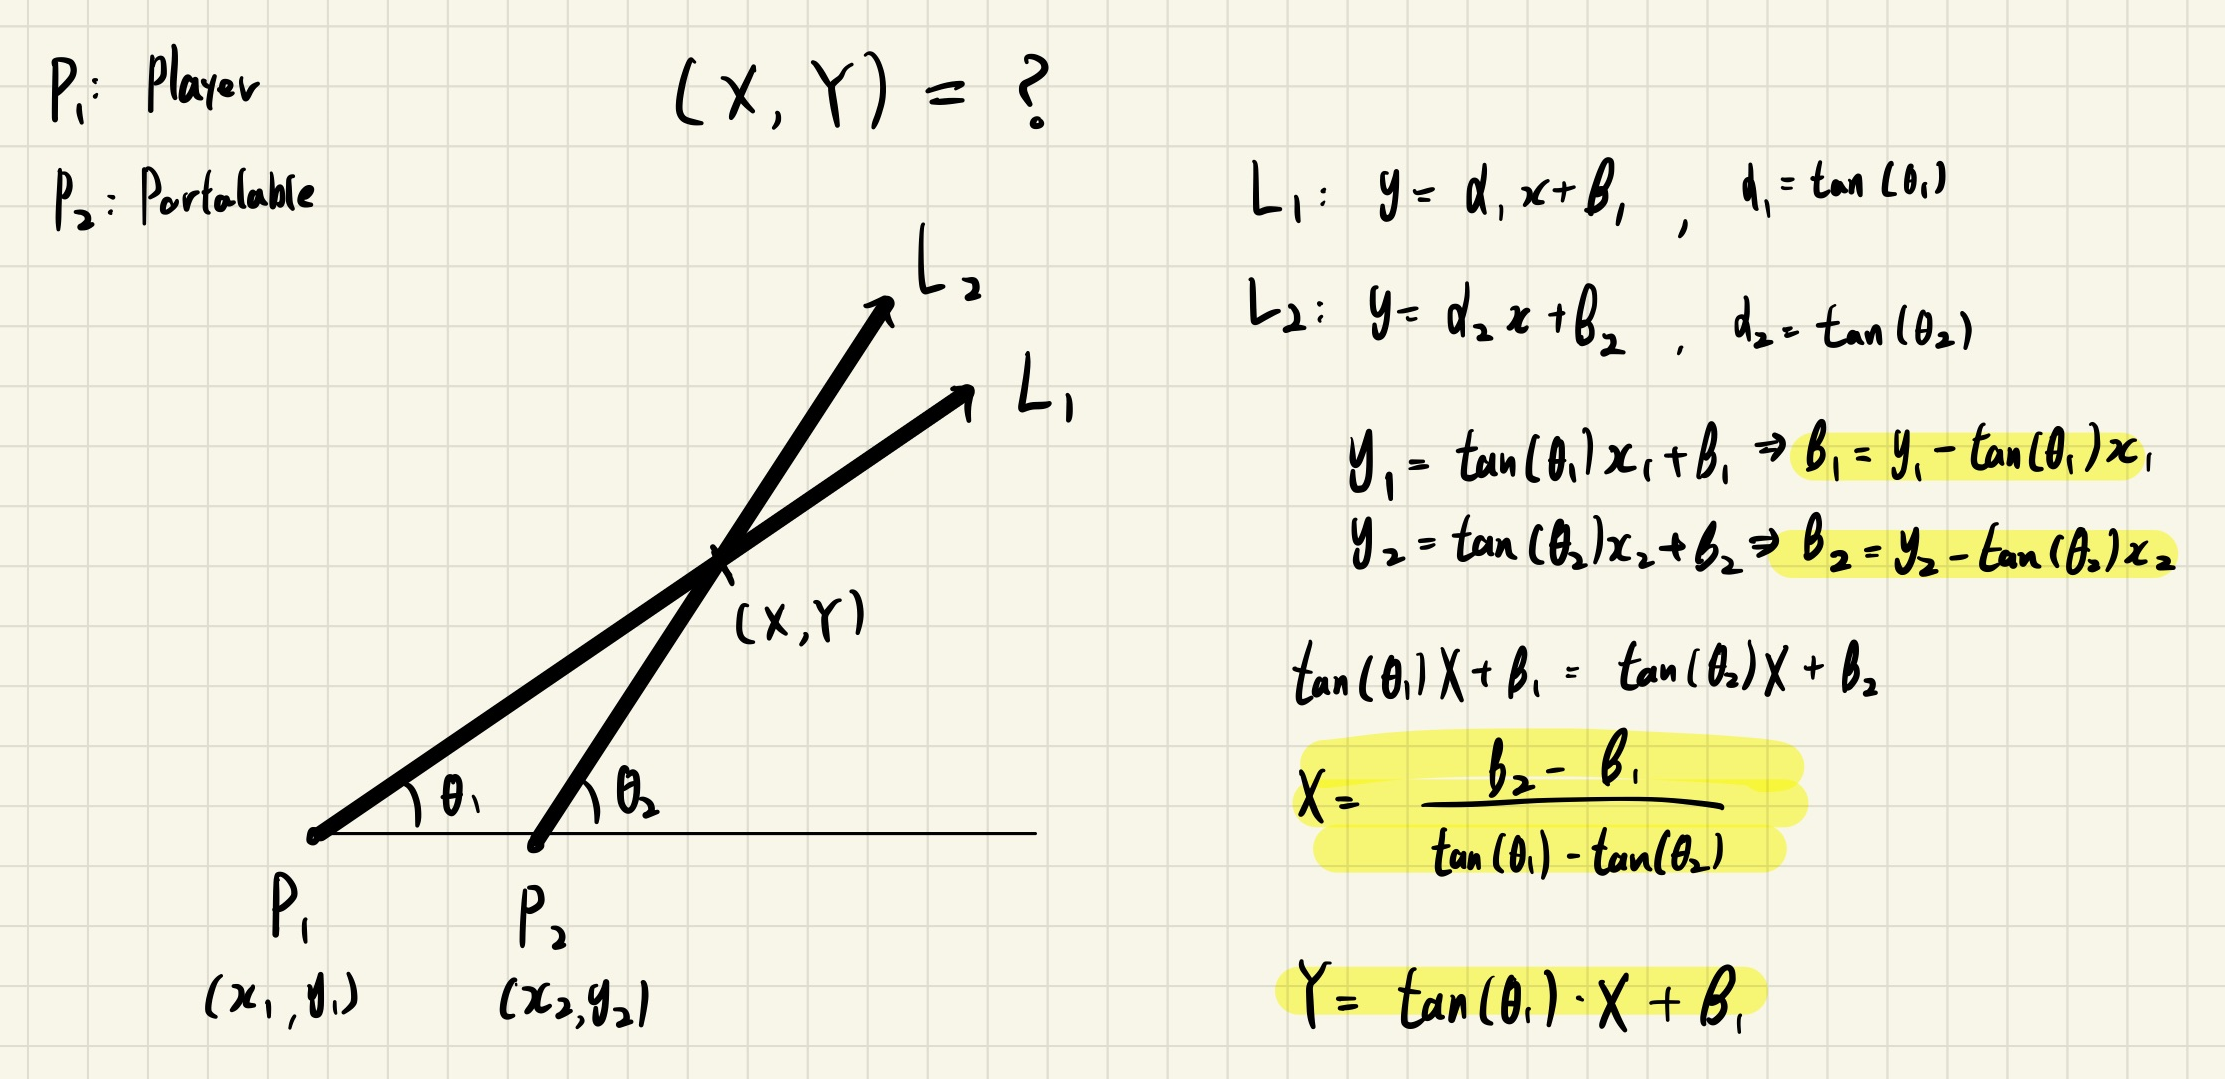 P₁: Player
P₂: Portalable
(X, Y) = ?
L₂
L₁
(X, Y)
θ₁
θ₂
P₁
(x₁, y₁)
P₂
(x₂, y₂)
L₁: y = d₁ x + B₁ , d₁ = tan(θ₁)
L₂: y = d₂ x + B₂ , d₂ = tan(θ₂)
y₁ = tan(θ₁)x₁ + B₁ ⇒ B₁ = y₁ - tan(θ₁)x₁
y₂ = tan(θ₂)x₂ + B₂ ⇒ B₂ = y₂ - tan(θ₂)x₂
tan(θ₁)X + B₁ = tan(θ₂)X + B₂
B₂ - B₁
X =
tan(θ₁) - tan(θ₂)
Y = tan(θ₁) · X + B₁